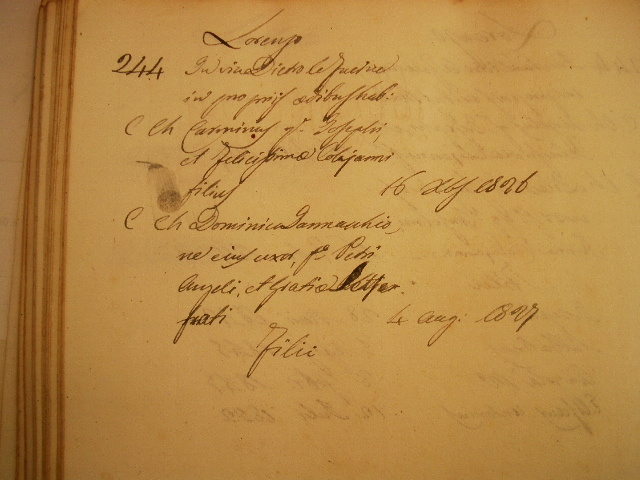 Lorenzo
244 In via Dietro le Fucine
in propriis ædibus hab:
C Ch Carminus qm Josephi,
et Felicissimæ Colajanni
filius 16 Xbris 1826
C Ch Dominica Iannacchio,
ne ejus uxor, fa Petri
Angeli, et Gratiæ
frati 4 aug: 1827
Filii